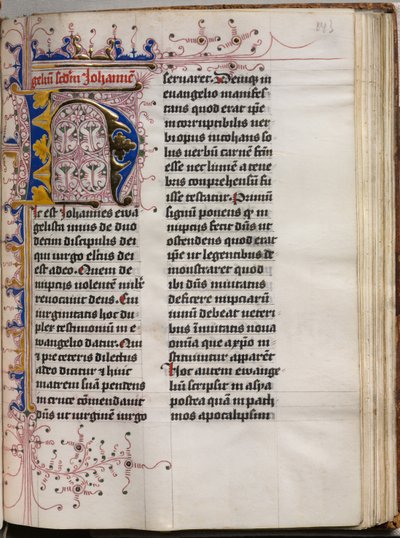 243
geliū scdm Johannē
Hic est Johannes ewā
gelista unus de duo
decim discipulis dei
qui virgo electus dei
est adeo. Quem de
nuptijs volentē nub̄e
revocavit deus. Cui
virginitatis hoc du
plex testimoniū in e
vangelio datur. Qui
et pre ceteris dilectus
a deo dicitur et huic
matrem suā pendens
in cruce cōmendavit
dūs ut virginē virgo
servaret. Deniqʒ in
evangelio manifes
tans quod erat ipē
incorruptibilis ver
bi opus inchoans so
lus verbū carnē factū
esse nec lumē a tene
bris comprehensū fu
isse testatur. Primū
signū ponens qʒ in
nuptijs fecit dūs ut
ostendens quod erat
ipē ut legentibus de
monstraret quod
ibi dūs invitatus
deficere nupciarū
vinū debeat veteri
bus īmutatis nova
omīa que a xp̄o in
stituuntur appareāt
Hoc autem ewange
liū scripsit in asya
postea quā in path
mos apocalipsim